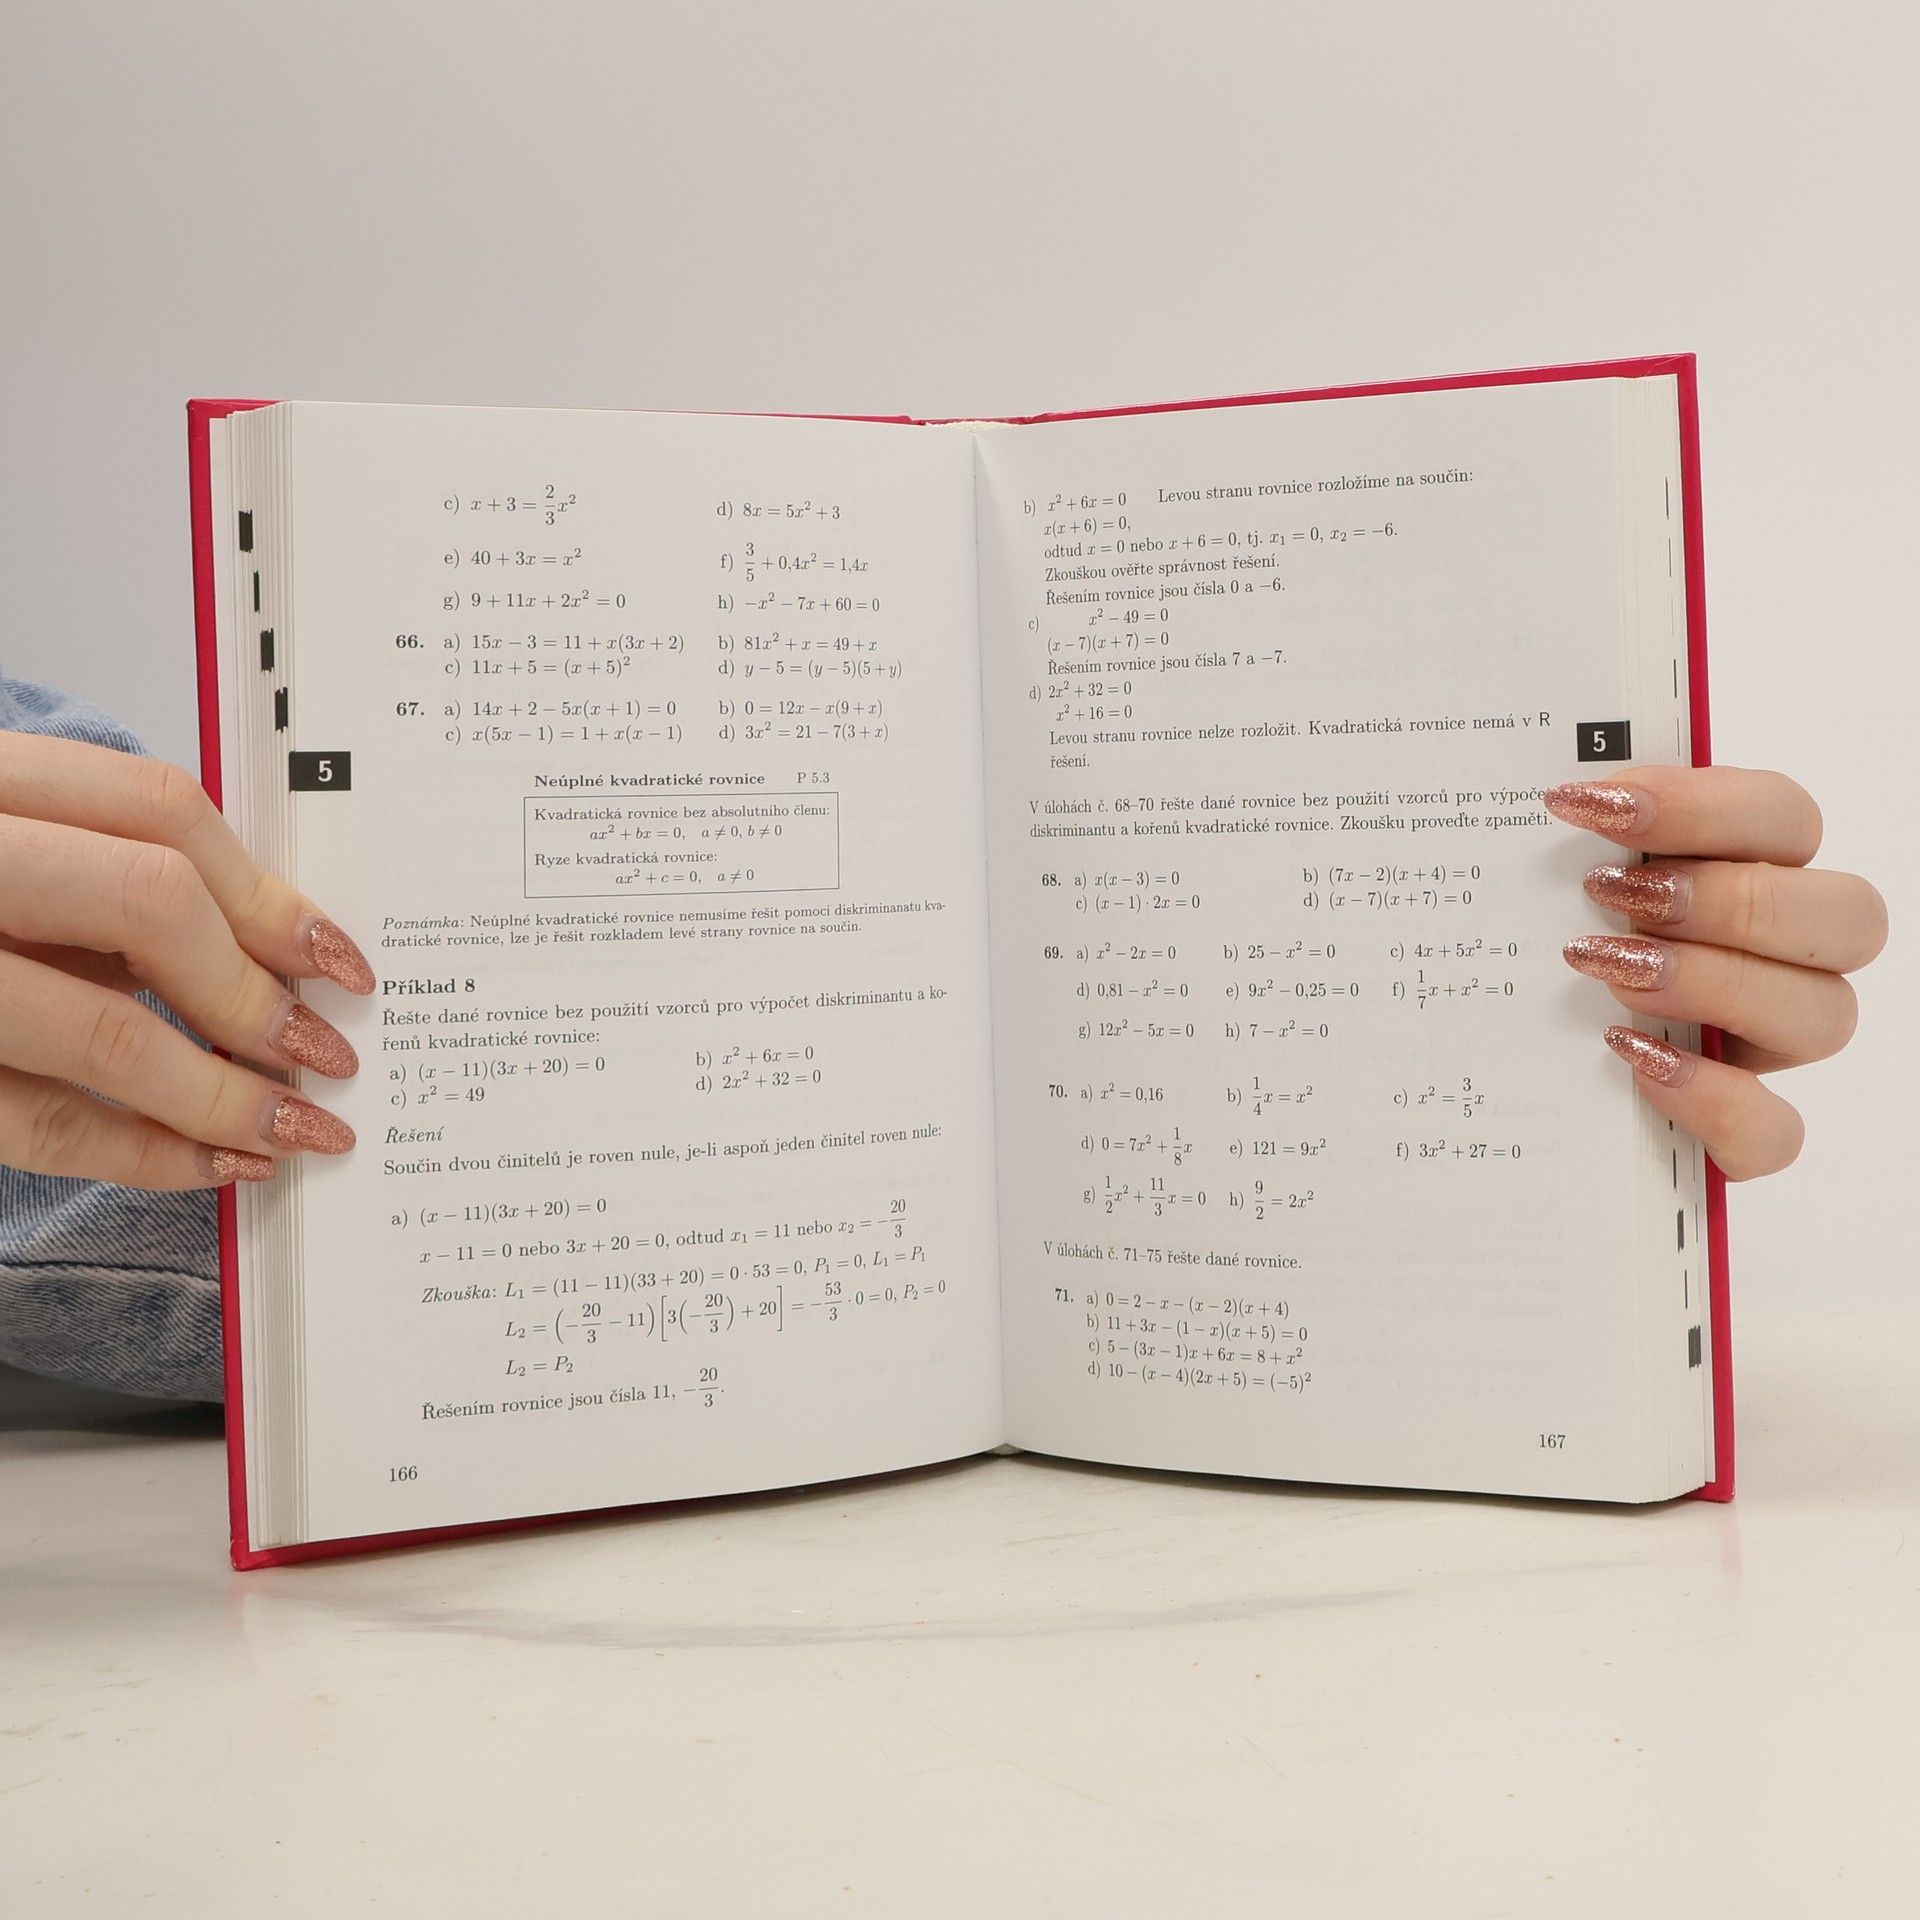 c) x + 3 = 2/3 x² d) 8x = 5x² + 3
e) 40 + 3x = x² f) 3/5 + 0,4x² = 1,4x
g) 9 + 11x + 2x² = 0 h) −x² − 7x + 60 = 0
66. a) 15x − 3 = 11 + x(3x + 2) b) 81x² + x = 49 + x
c) 11x + 5 = (x + 5)² d) y − 5 = (y − 5)(5 + y)
67. a) 14x + 2 − 5x(x + 1) = 0 b) 0 = 12x − x(9 + x)
c) x(5x − 1) = 1 + x(x − 1) d) 3x² = 21 − 7(3 + x)
5
Neúplné kvadratické rovnice P 5.3
Kvadratická rovnice bez absolutního členu:
ax² + bx = 0, a ≠ 0, b ≠ 0
Ryze kvadratická rovnice:
ax² + c = 0, a ≠ 0
Poznámka: Neúplné kvadratické rovnice nemusíme řešit pomocí diskriminanatu kva-
dratické rovnice, lze je řešit rozkladem levé strany rovnice na součin.
Příklad 8
Řešte dané rovnice bez použití vzorců pro výpočet diskriminantu a ko-
řenů kvadratické rovnice:
a) (x − 11)(3x + 20) = 0 b) x² + 6x = 0
c) x² = 49 d) 2x² + 32 = 0
Řešení
Součin dvou činitelů je roven nule, je-li aspoň jeden činitel roven nule:
a) (x − 11)(3x + 20) = 0
x − 11 = 0 nebo 3x + 20 = 0, odtud x₁ = 11 nebo x₂ = −20/3
Zkouška: L₁ = (11 − 11)(33 + 20) = 0 · 53 = 0, P₁ = 0, L₁ = P₁
L₂ = (−20/3 − 11)[3(−20/3) + 20] = −53/3 · 0 = 0, P₂ = 0
L₂ = P₂
Řešením rovnice jsou čísla 11, −20/3.
166
b) x² + 6x = 0 Levou stranu rovnice rozložíme na součin:
x(x + 6) = 0,
odtud x = 0 nebo x + 6 = 0, tj. x₁ = 0, x₂ = −6.
Zkouškou ověřte správnost řešení.
Řešením rovnice jsou čísla 0 a −6.
c) x² − 49 = 0
(x − 7)(x + 7) = 0
Řešením rovnice jsou čísla 7 a −7.
d) 2x² + 32 = 0
x² + 16 = 0
Levou stranu rovnice nelze rozložit. Kvadratická rovnice nemá v R
řešení.
5
V úlohách č. 68–70 řešte dané rovnice bez použití vzorců pro výpoče
diskriminantu a kořenů kvadratické rovnice. Zkoušku proveďte zpaměti.
68. a) x(x − 3) = 0 b) (7x − 2)(x + 4) = 0
c) (x − 1) · 2x = 0 d) (x − 7)(x + 7) = 0
69. a) x² − 2x = 0 b) 25 − x² = 0 c) 4x + 5x² = 0
d) 0,81 − x² = 0 e) 9x² − 0,25 = 0 f) 1/7 x + x² = 0
g) 12x² − 5x = 0 h) 7 − x² = 0
70. a) x² = 0,16 b) 1/4 x = x² c) x² = 3/5 x
d) 0 = 7x² + 1/8 x e) 121 = 9x² f) 3x² + 27 = 0
g) 1/2 x² + 11/3 x = 0 h) 9/2 = 2x²
V úlohách č. 71–75 řešte dané rovnice.
71. a) 0 = 2 − x − (x − 2)(x + 4)
b) 11 + 3x − (1 − x)(x + 5) = 0
c) 5 − (3x − 1)x + 6x = 8 + x²
d) 10 − (x − 4)(2x + 5) = (−5)²
167